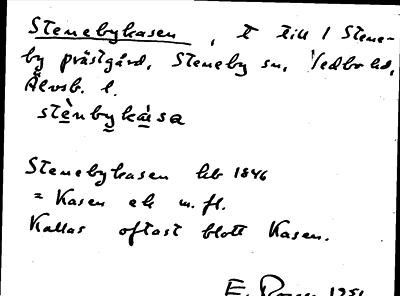 Stenebykasen, t till 1 Stene-
by prästgård, Steneby sn, Vedbo hd,
Älvsb. l.
stènbykàsa
Stenebykasen hb 1846
= Kasen ek m. fl.
Kallas oftast blott Kasen.
E.